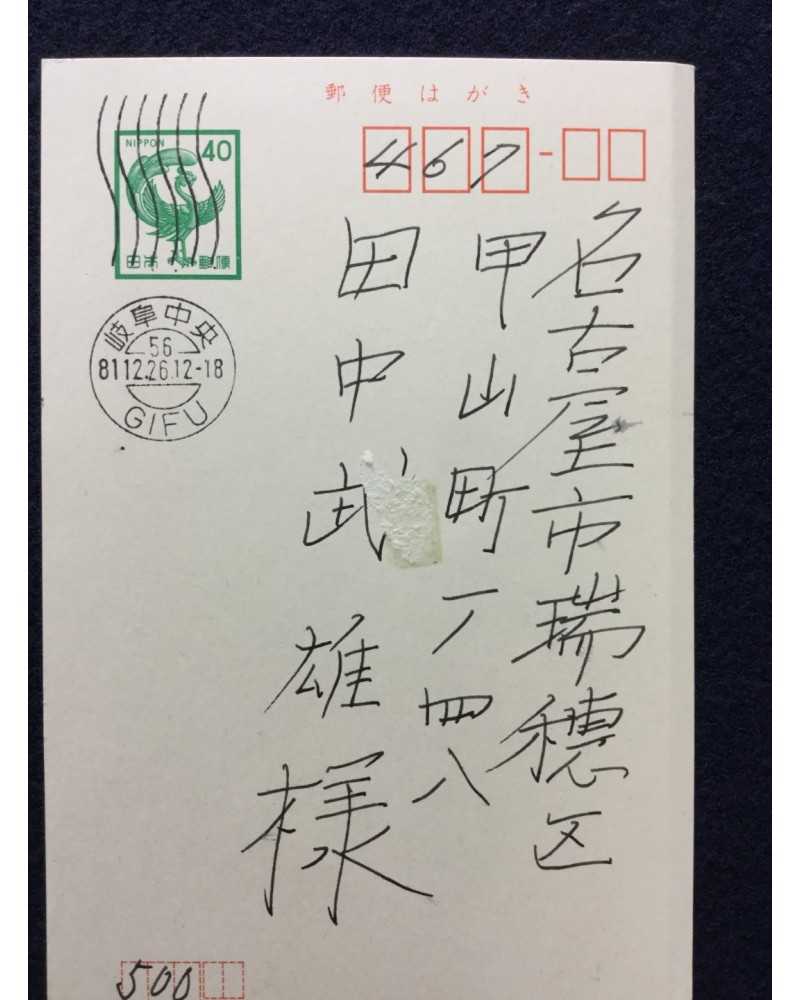 郵便はがき
467
名古屋市瑞穂区
甲山町一ノ四八
田中武雄様
NIPPON
40
日本郵便
岐阜中央
56
81.12.26.12-18
GIFU
500